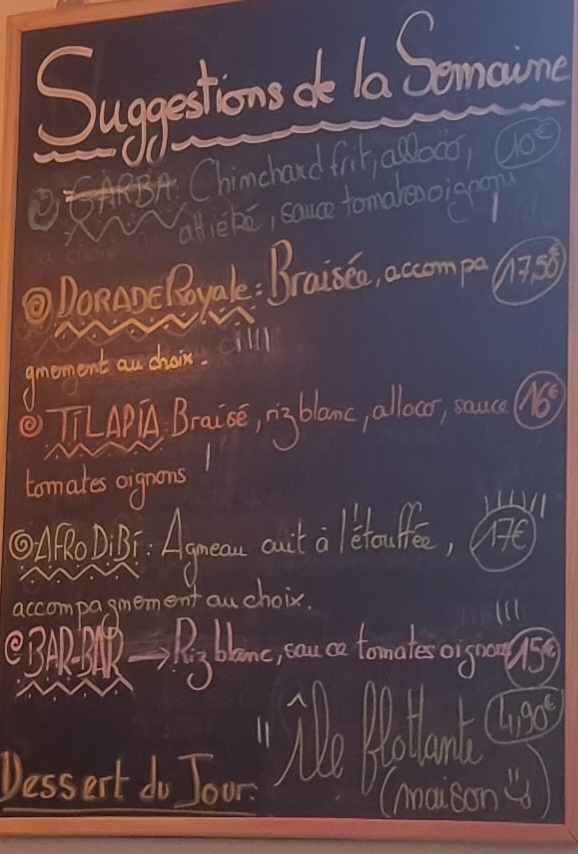 Suggestions de la Semaine
GARBA: Chimchard frit, alloco, 10€
attiéké, sauce tomates oignons
DORADE Royale: Braisée, accompa 17,50€
gnement au choix.
TILAPIA Braisé, riz blanc, alloco, sauce 16€
tomates oignons
AFRO DiBi: Agneau cuit à l'étouffée, 17€
accompagnement au choix.
BAR-BAR → Riz blanc, sauce tomates oignons 15€
Dessert du Jour: "Île flottante 4,90€
(maison)